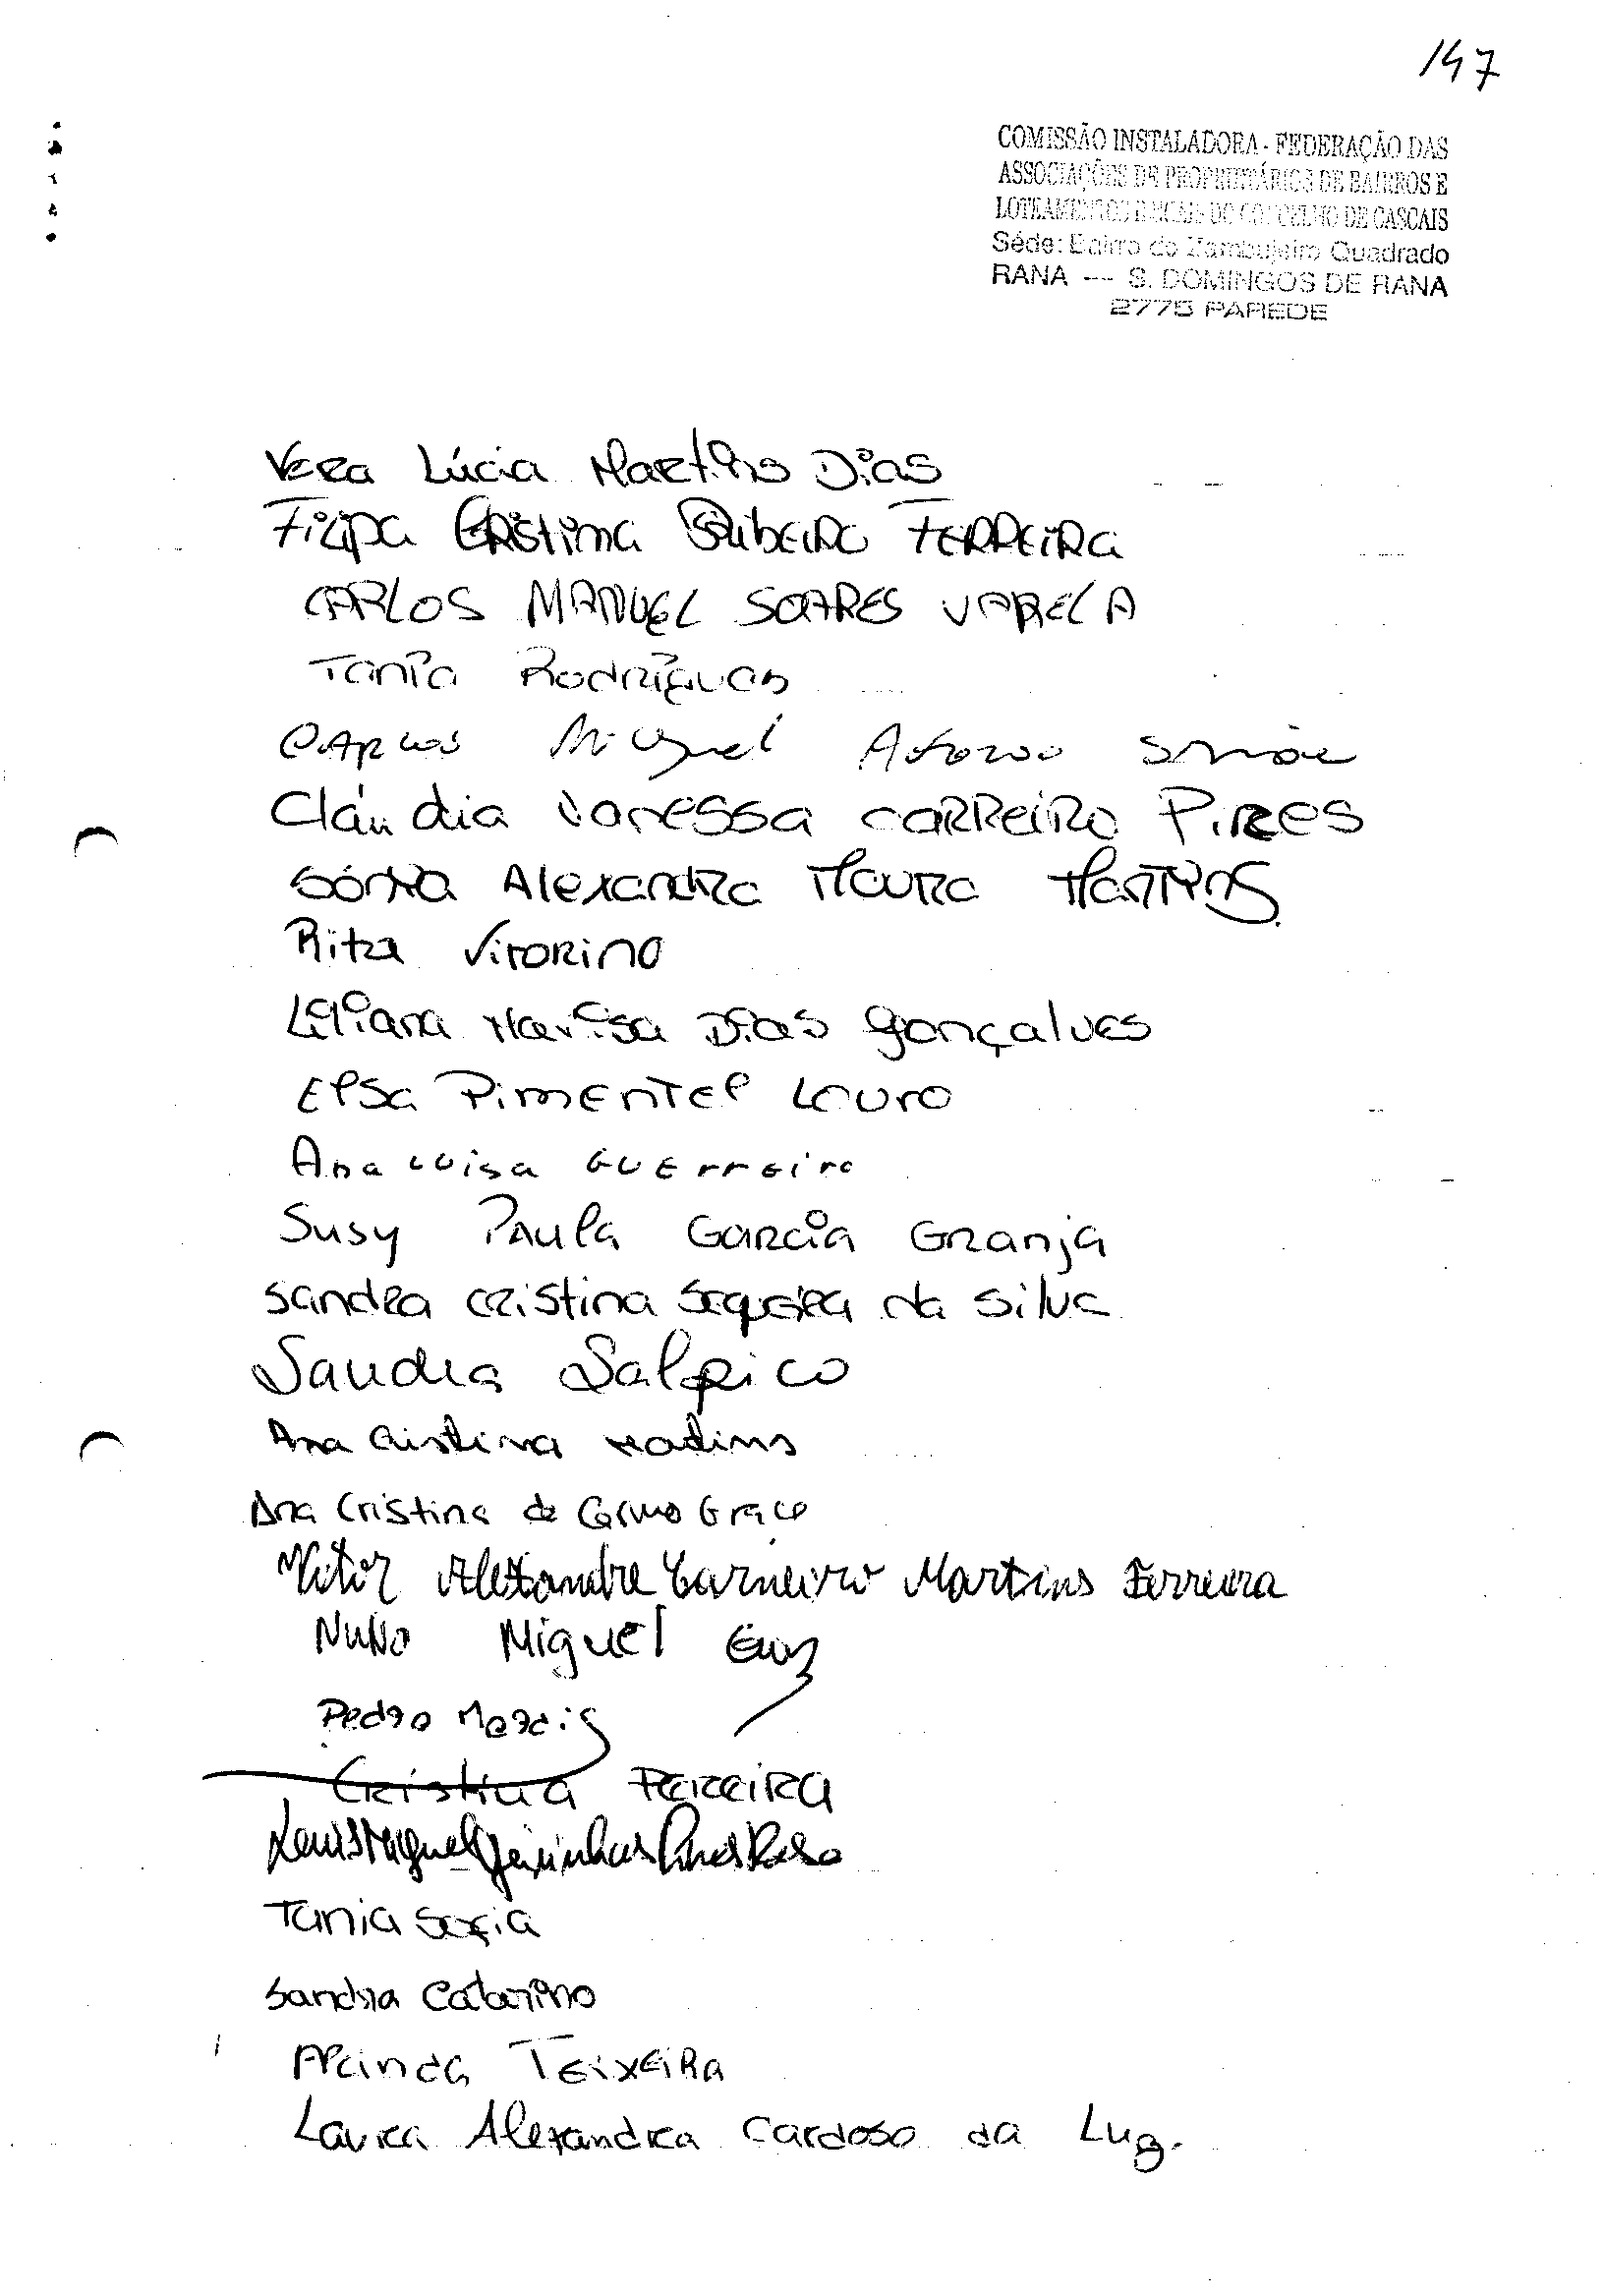 147
COMISSÃO INSTALADORA - FEDERAÇÃO DAS
ASSOCIAÇÕES DE PROPRIETÁRIOS DE BAIRROS E
LOTEAMENTOS DO CONCELHO DE CASCAIS
Séde: Bairro do Zambujeiro Quadrado
RANA --- S. DOMINGOS DE RANA
2775 PAREDE
Vera Lúcia Martins Dias
Filipa Cristina Ribeiro FERREIRA
CARLOS MANUEL SOARES VARELA
Tania Rodrigues
CARLOS Miguel Afonso Simões
Cláudia Vanessa Carreiro Pires
Sónia Alexandra Moura Martins
Rita Vitorino
Liliana Marisa Dias Gonçalves
Elsa Pimentel Louro
Ana Luisa Guerreiro
Susy Paula Garcia Granja
Sandra Cristina Sequeira da Silva
Sandra Salpico
Ana Cristina Martins
Ana Cristina do Carmo
Vitor Alexandre Carneiro Martins Ferreira
NUNO Miguel
Pedro Morais
Cristina Ferreira
Luis Miguel Pires Rosa
Tania Sofia
Sandra Catarino
Alcinda Teixeira
Laura Alexandra Cardoso da Luz.